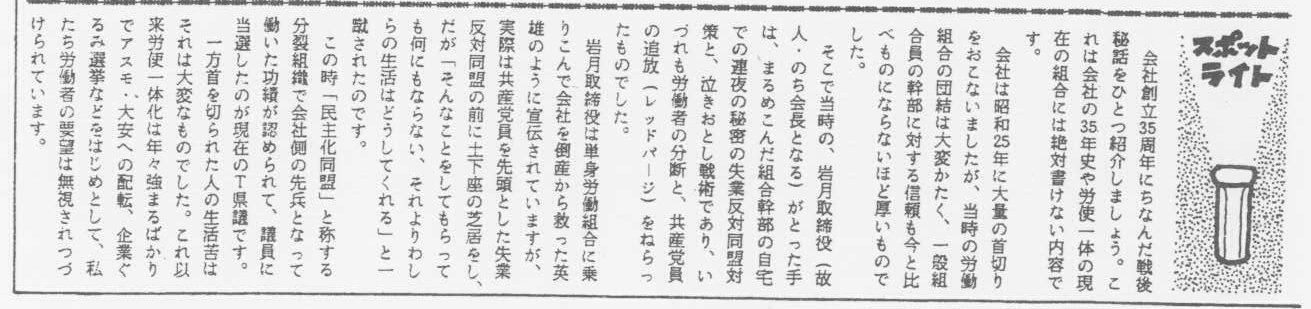 スポット
ライト
会社創立35周年にちなんだ戦後
秘話をひとつ紹介しましょう。こ
れは会社の35年史や労使一体の現
在の組合には絶対書けない内容で
す。
会社は昭和25年に大量の首切り
をおこないましたが、当時の労働
組合の団結は大変かたく、一般組
合員の幹部に対する信頼も今と比
べものにならないほど厚いもので
した。
そこで当時の、岩月取締役（故
人　のち会長となる）がとった手
は、まるめこんだ組合幹部の自宅
での連夜の秘密の失業反対同盟対
策と、泣きおとし戦術であり、い
づれも労働者の分断と、共産党員
の追放（レッドパージ）をねらっ
たものでした。
岩月取締役は単身労働組合に乗
りこんで会社を倒産から救った英
雄のように宣伝されていますが、
実際は共産党員を先頭とした失業
反対同盟の前に土下座の芝居をし、
だが「そんなことをしてもらって
も何にもならない、それよりわし
らの生活はどうしてくれる」と一
蹴されたのです。
この時「民主化同盟」と称する
分裂組織で会社側の先兵となって
働いた功績が認められて、議員に
当選したのが現在のT県議です。
一方首を切られた人の生活苦は
それは大変なものでした。これ以
来労使一体化は年々強まるばかり
でアスモ、大安への配転、企業ぐ
るみ選挙などをはじめとして、私
たち労働者の要望は無視されつづ
けられています。